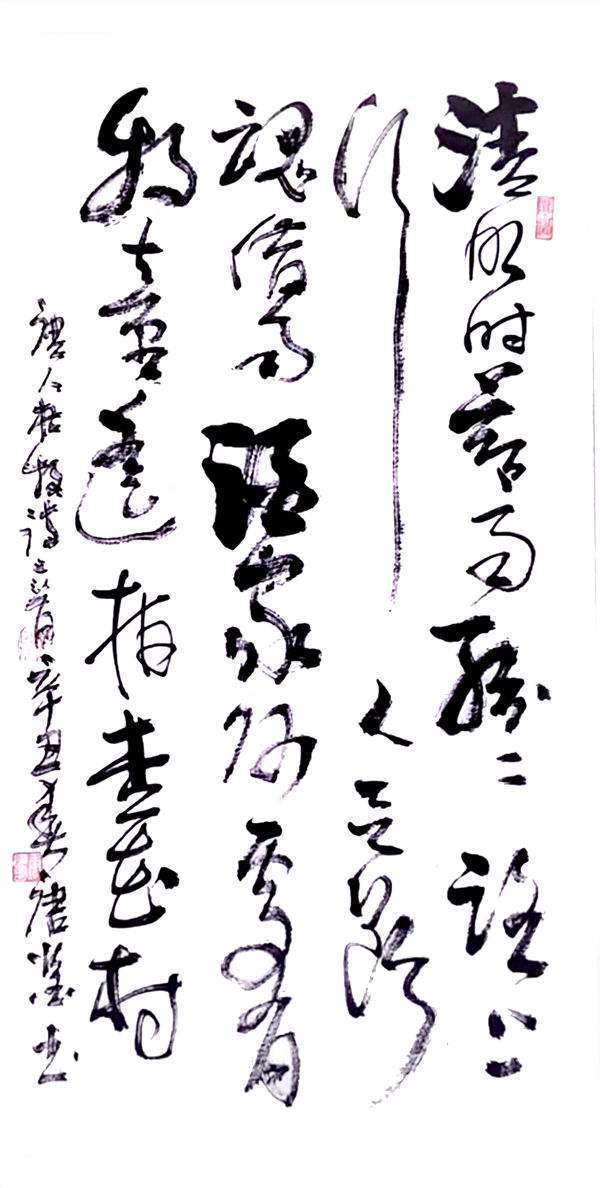 清明时节雨纷纷路上
行人欲断
魂借问酒家何处有
牧童遥指杏花村
唐人杜牧诗 辛丑春唐 书